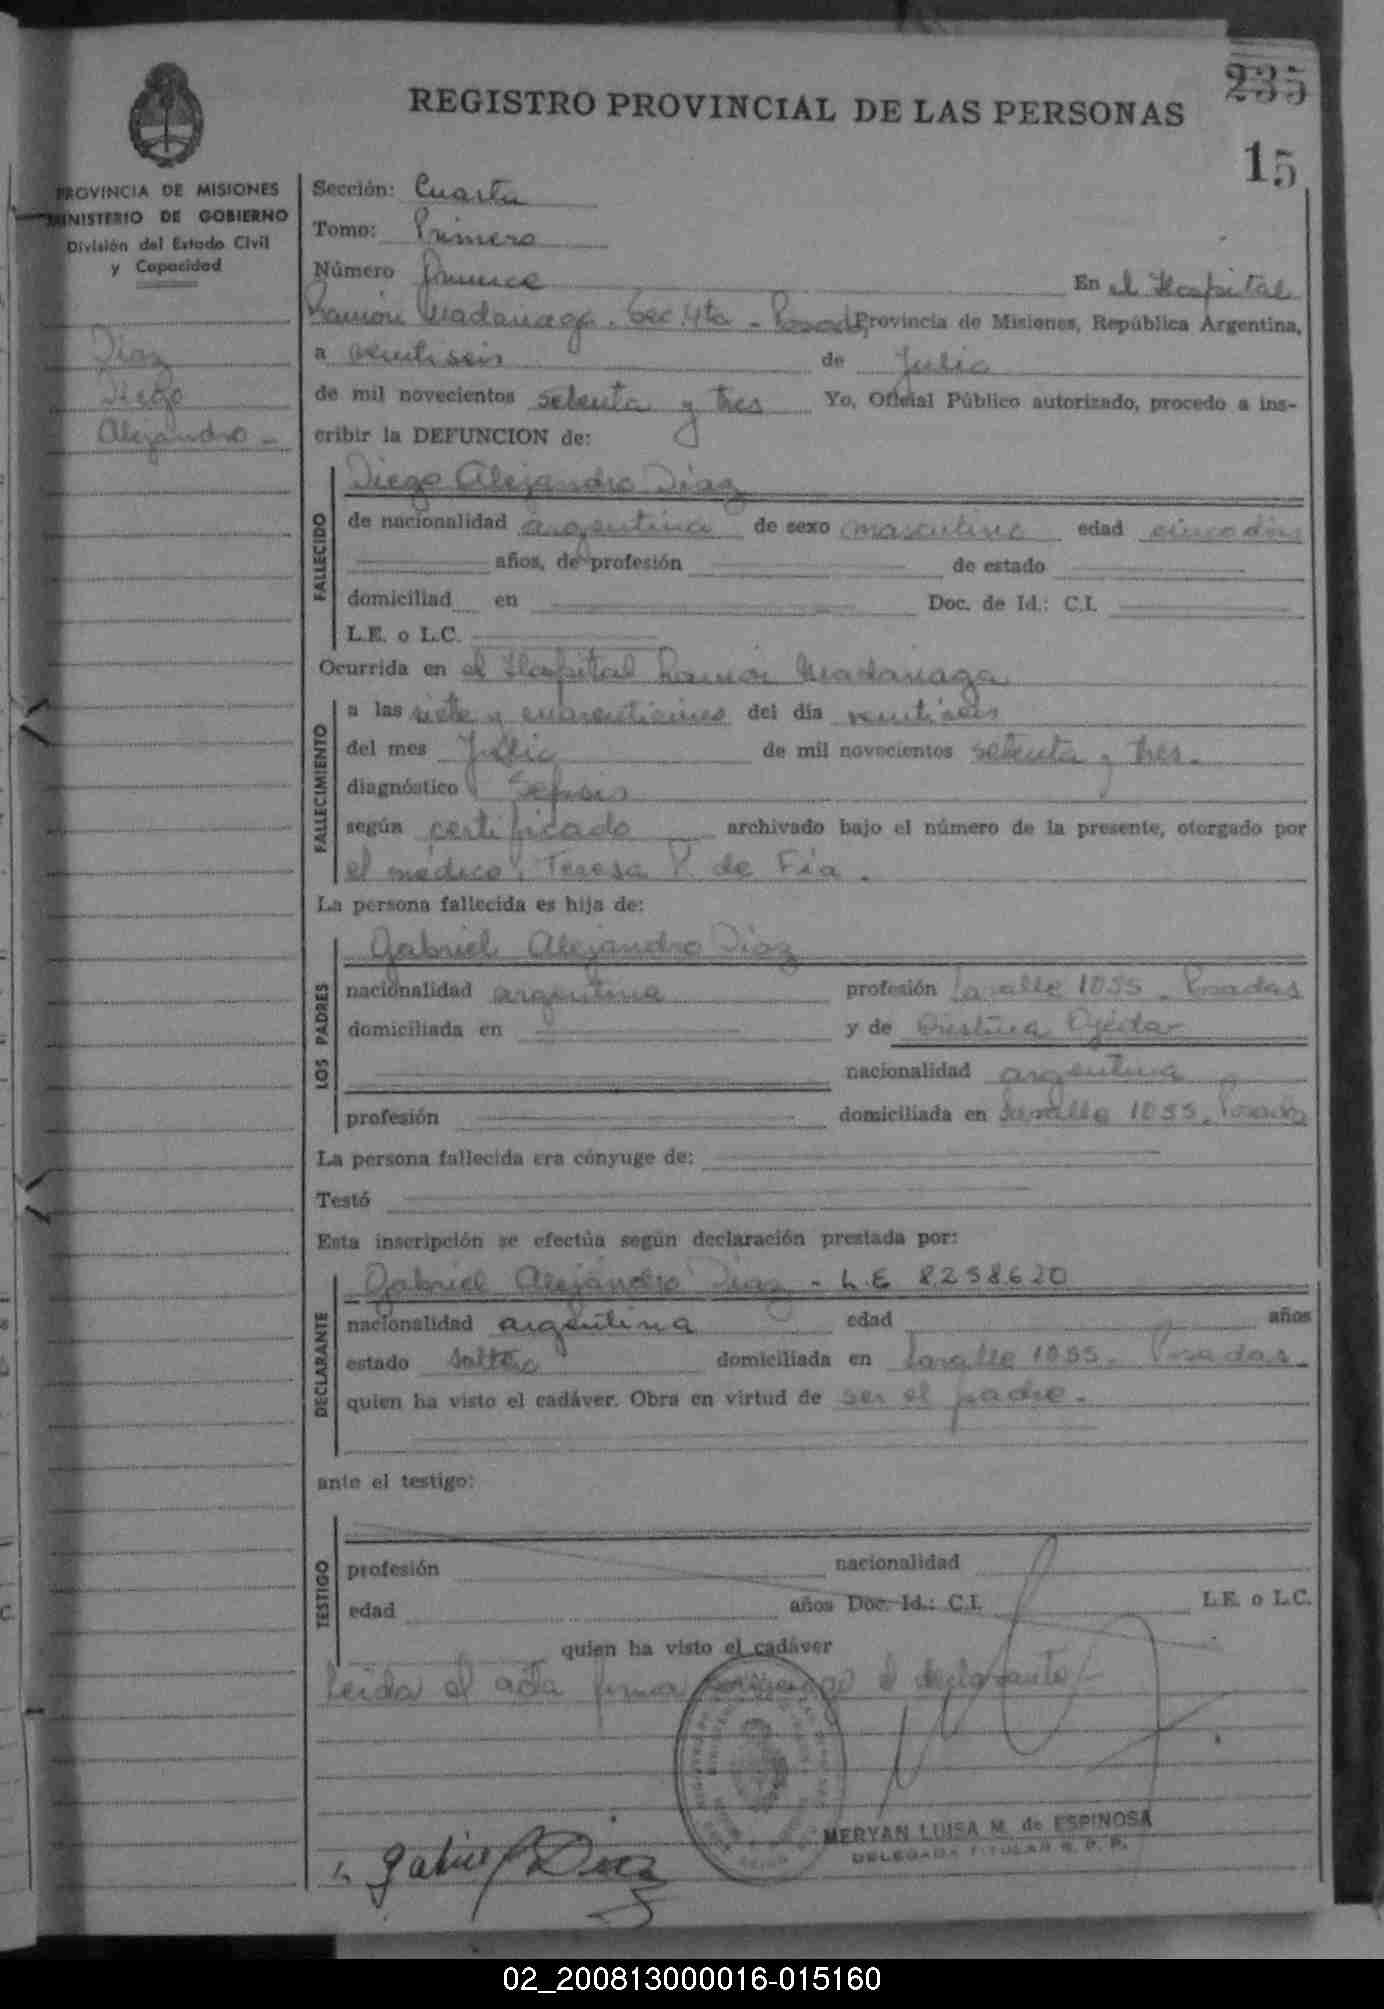 235
REGISTRO PROVINCIAL DE LAS PERSONAS
15
PROVINCIA DE MISIONES
MINISTERIO DE GOBIERNO
División del Estado Civil
y Capacidad
Diaz
Diego
Alejandro -
Sección: Cuarta
Tomo: Primero
Número quince En el Hospital
Ramón Madariaga. Sec. 4ta - Posadas Provincia de Misiones, República Argentina,
a veintiseis de Julio
de mil novecientos setenta y tres Yo, Oficial Público autorizado, procedo a ins-
cribir la DEFUNCION de:
FALLECIDO
Diego Alejandro Diaz
de nacionalidad argentina de sexo masculino edad cinco dias
años, de profesión de estado
domiciliad en Doc. de Id.: C.I.
L.E. o L.C.
Ocurrida en el Hospital Ramón Madariaga
FALLECIMIENTO
a las siete y del día veintiseis
del mes Julio de mil novecientos setenta y tres.
diagnóstico Sepsis
según certificado archivado bajo el número de la presente, otorgado por
el medico, Teresa de Fia.
La persona fallecida es hija de:
LOS PADRES
Gabriel Alejandro Diaz
nacionalidad argentina profesión Lavalle 1055. Posadas
domiciliada en y de Cristina Ojeda
nacionalidad argentina
profesión domiciliada en Lavalle 1055. Posadas
La persona fallecida era cónyuge de:
Testó
Esta inscripción se efectúa según declaración prestada por:
DECLARANTE
Gabriel Alejandro Diaz - L.E 8.258.620
nacionalidad argentina edad años
estado soltero domiciliada en Lavalle 1055. Posadas.
quien ha visto el cadáver. Obra en virtud de ser el padre.
ante el testigo:
TESTIGO
profesión nacionalidad
edad años Doc. Id.: C.I. L.E. o L.C.
quien ha visto el cadáver
Leida el acta firma conmigo el declarante
Gabriel Diaz
MERYAN LUISA M. de ESPINOSA
DELEGADA TITULAR R. P. P.
02_200813000016-015160